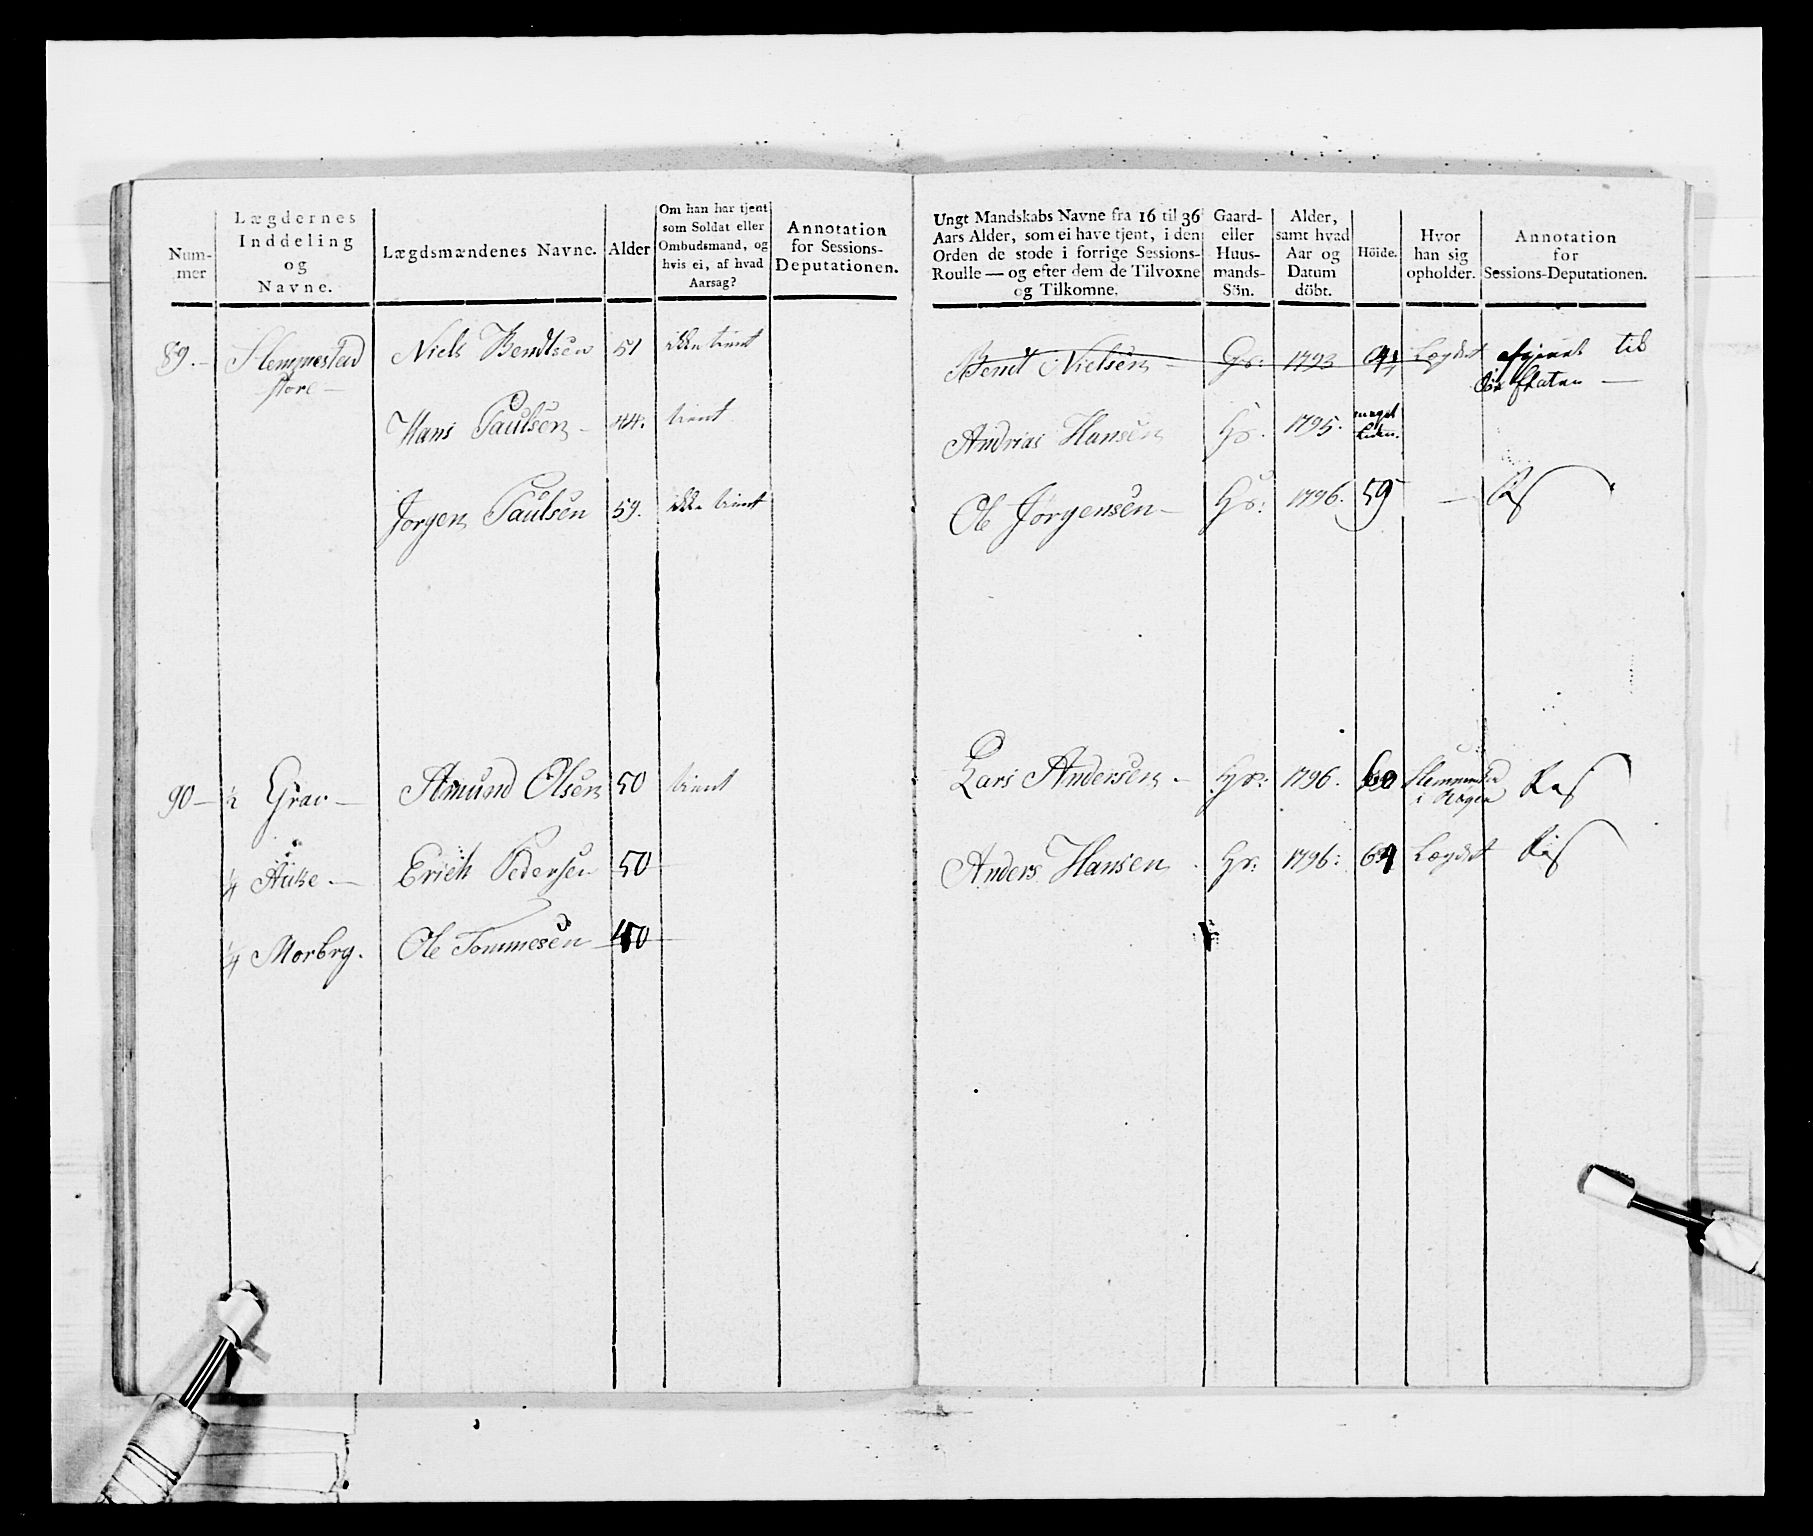 Num-
mer
Lægdernes
Inddeling
og
Navne.
Lægdsmændenes Navne.
Alder
Om han har tjent
som Soldat eller
Ombudsmand, og
hvis ei, af hvad
Aarsag?
Annotation
for Sessions-
Deputationen.
Ungt Mandskabs Navne fra 16 til 36
Aars Alder, som ei have tjent, i den
Orden de stode i forrige Sessions-
Roulle — og efter dem de Tilvoxne
og Tilkomne.
Gaard-
eller
Huus-
mands-
Sön.
Alder,
samt hvad
Aar og
Datum
döbt.
Höide.
Hvor
han sig
opholder.
Annotation
for
Sessions-Deputationen.
89. — Slemmestad Niels Bendtsen 51 ikke tient
store —
Bendt Nielsen — Gs: 1793 Lægdet afgivet til
Söe Staten —
Hans Paulsen — 44. tient
Andrias Hansen Hs. 1795. meget
liden.
Jörgen Paulsen 59. ikke tient
Ole Jörgensen — Hs: 1796. 59 —
90 — ½ Grav — Amund Olsen 50 tient
Lars Andersen — Hs: 1796. 60 Slemmestad
i Rögen
¼ Auke — Erich Pedersen 50
Anders Hansen Hs: 1796: 64 Lægdet
¼ Morbry. Ole Tommesen 40